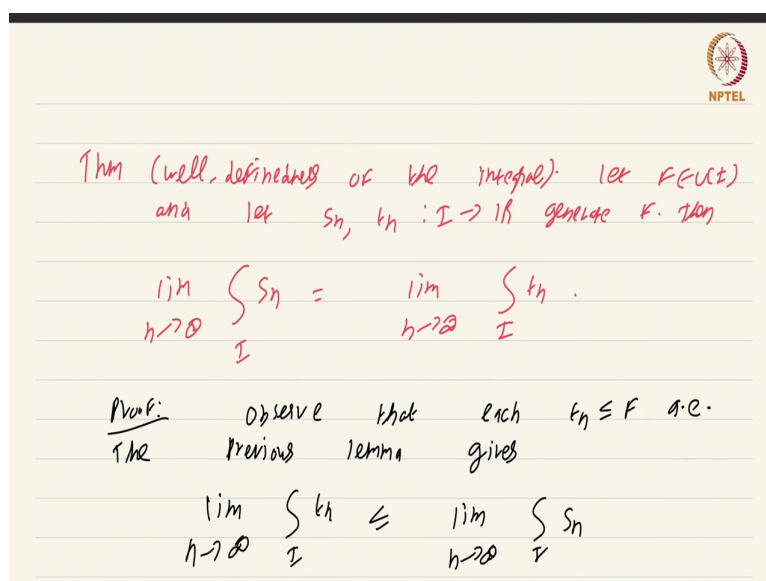 NPTEL
Thm (well-definedness of the integral). let F ∈ U(I)
and let Sn, tn : I -> IR generate F. Then
lim n->∞ ∫_I Sn = lim n->∞ ∫_I tn .
Proof: observe that each tn ≤ F a.e.
The previous lemma gives
lim n->∞ ∫_I tn ≤ lim n->∞ ∫_I Sn